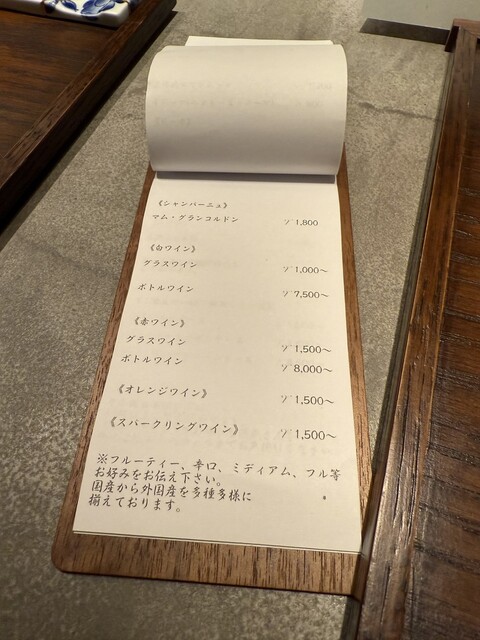 《シャンパーニュ》
マム・グランコルドン ソ゛1,800
《白ワイン》
グラスワイン ソ゛1,000～
ボトルワイン ソ゛7,500～
《赤ワイン》
グラスワイン ソ゛1,500～
ボトルワイン ソ゛8,000～
《オレンジワイン》 ソ゛1,500～
《スパークリングワイン》 ソ゛1,500～
※フルーティー、辛口、ミディアム、フル等
お好みをお伝え下さい。
国産から外国産を多種多様に
揃えております。